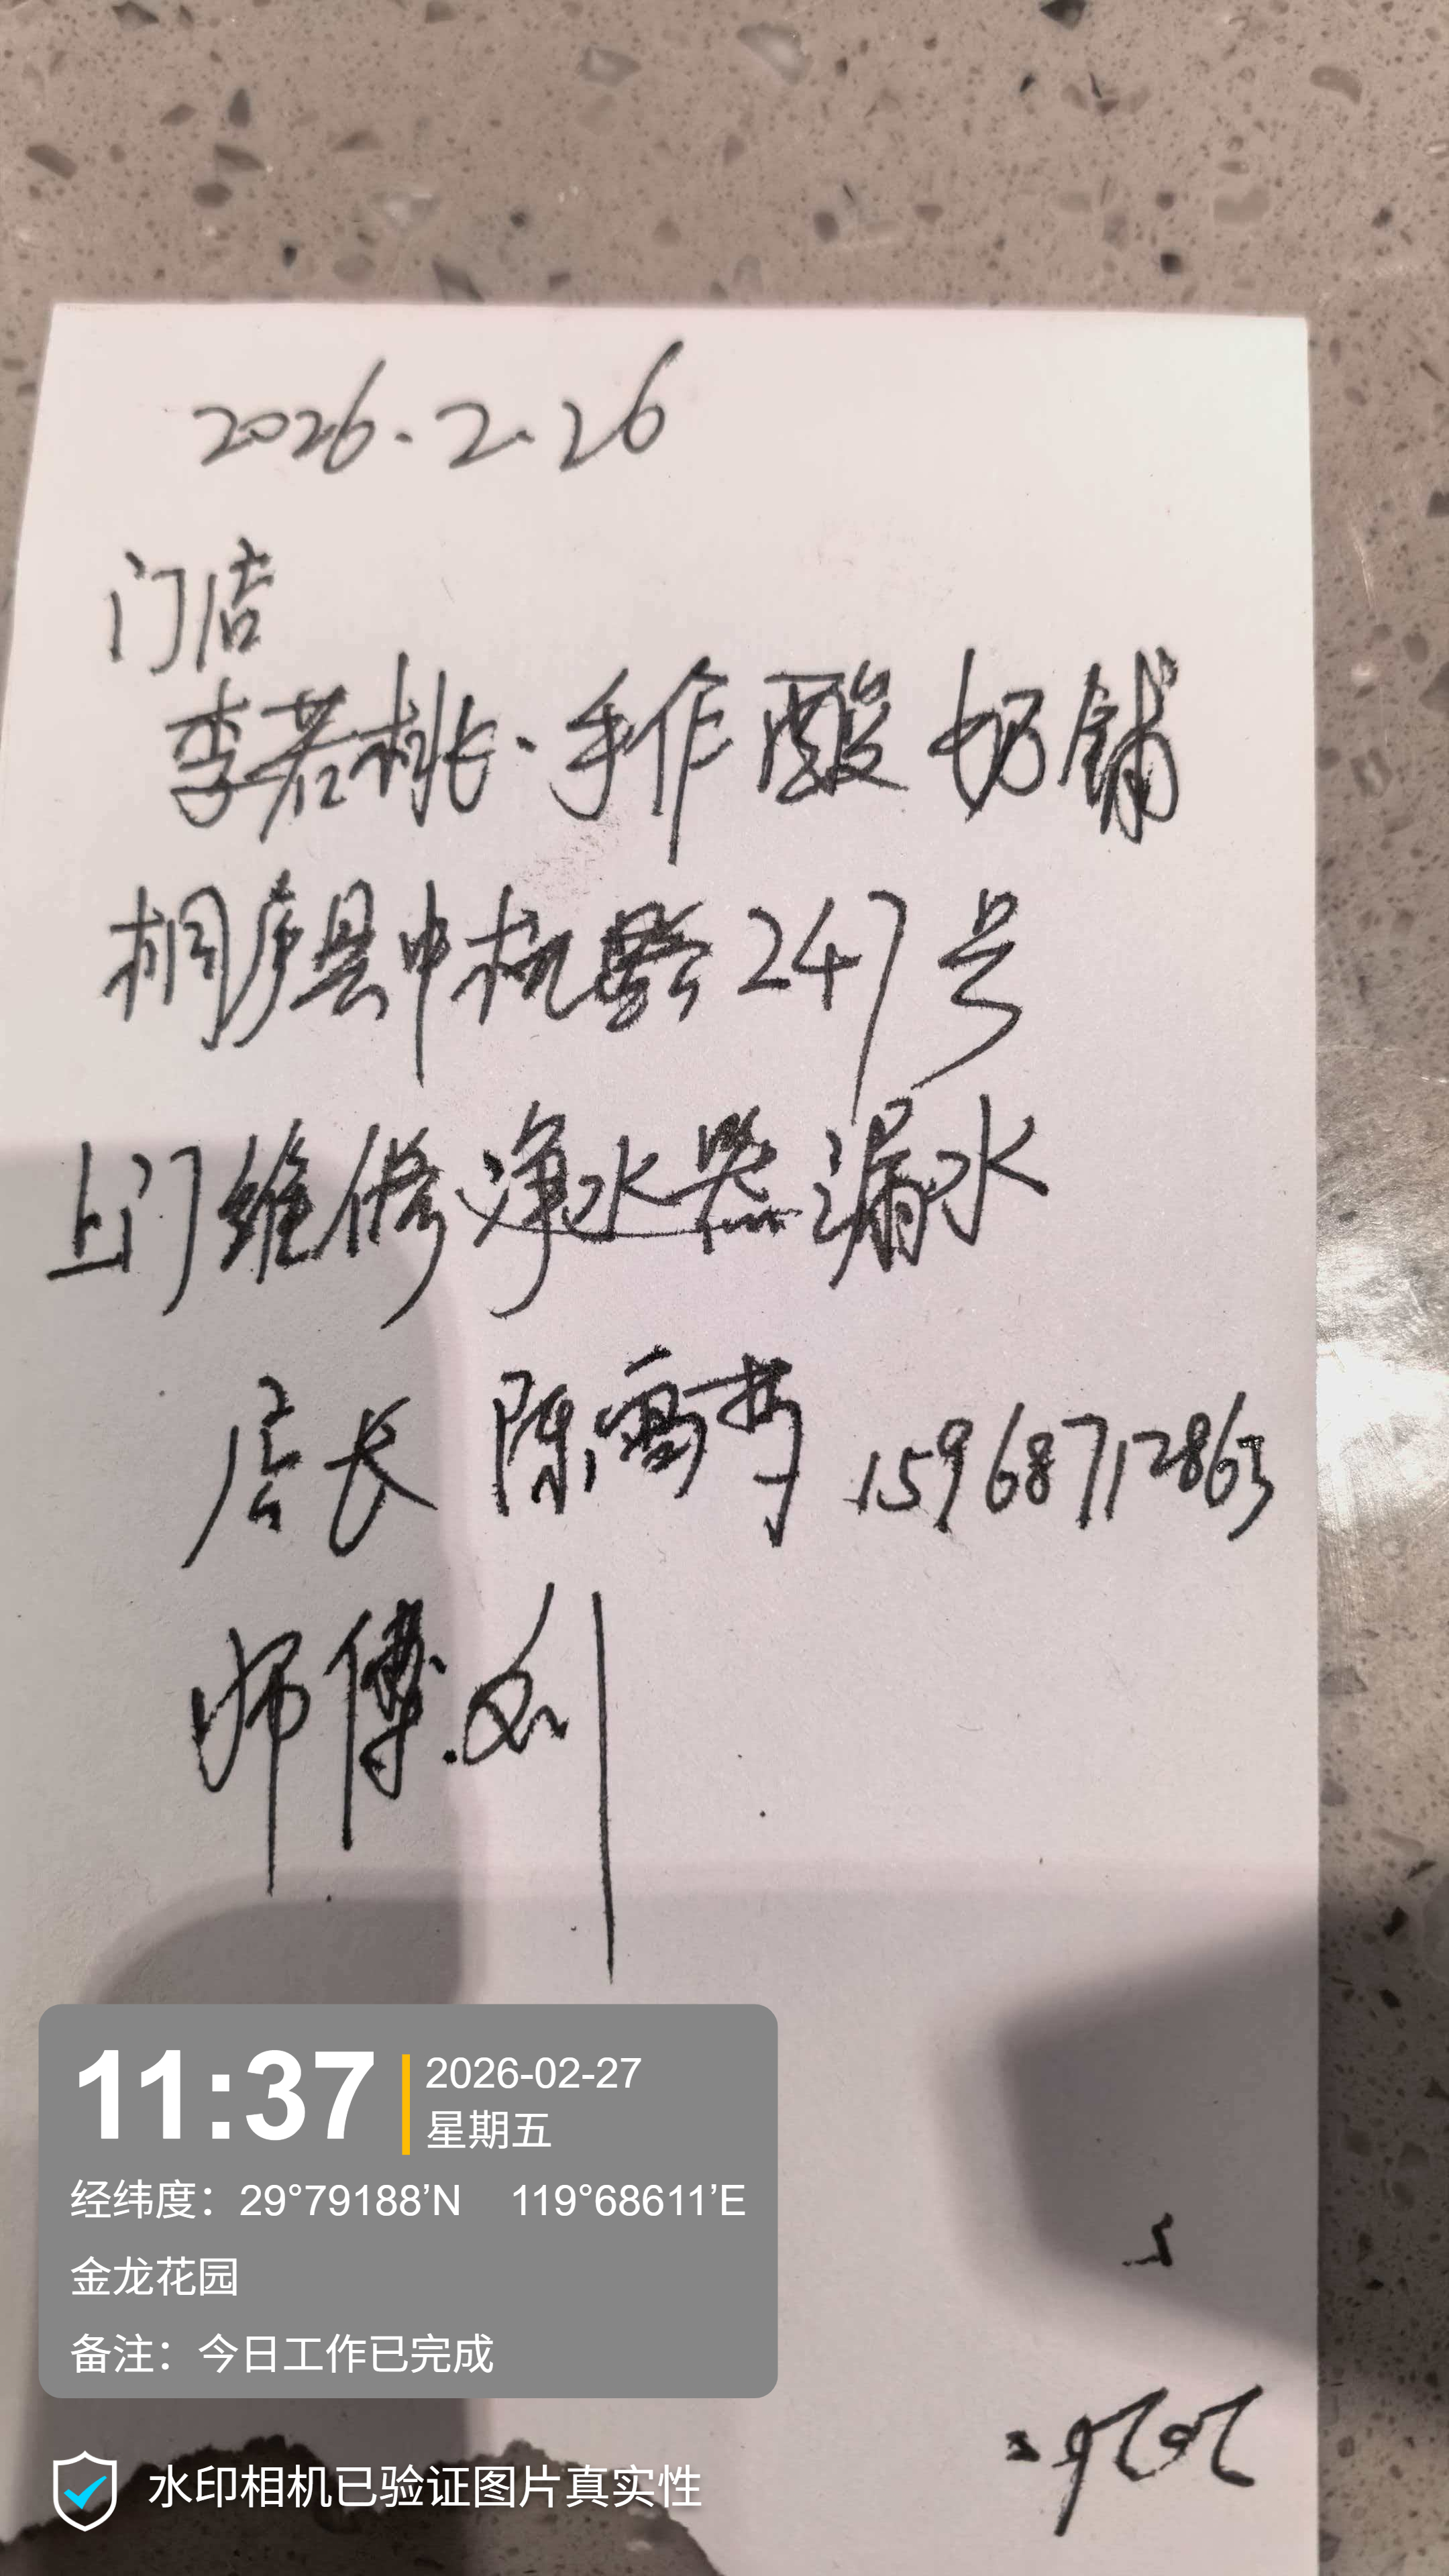 2026.2.26
门店
李若桃·手作酸奶铺
桐庐县中杭路247号
上门维修净水器漏水
店长 陈雪 15968712863
师傅.刘
11:37
2026-02-27
星期五
经纬度：29°79188’N 119°68611’E
金龙花园
备注：今日工作已完成
水印相机已验证图片真实性
2026.2